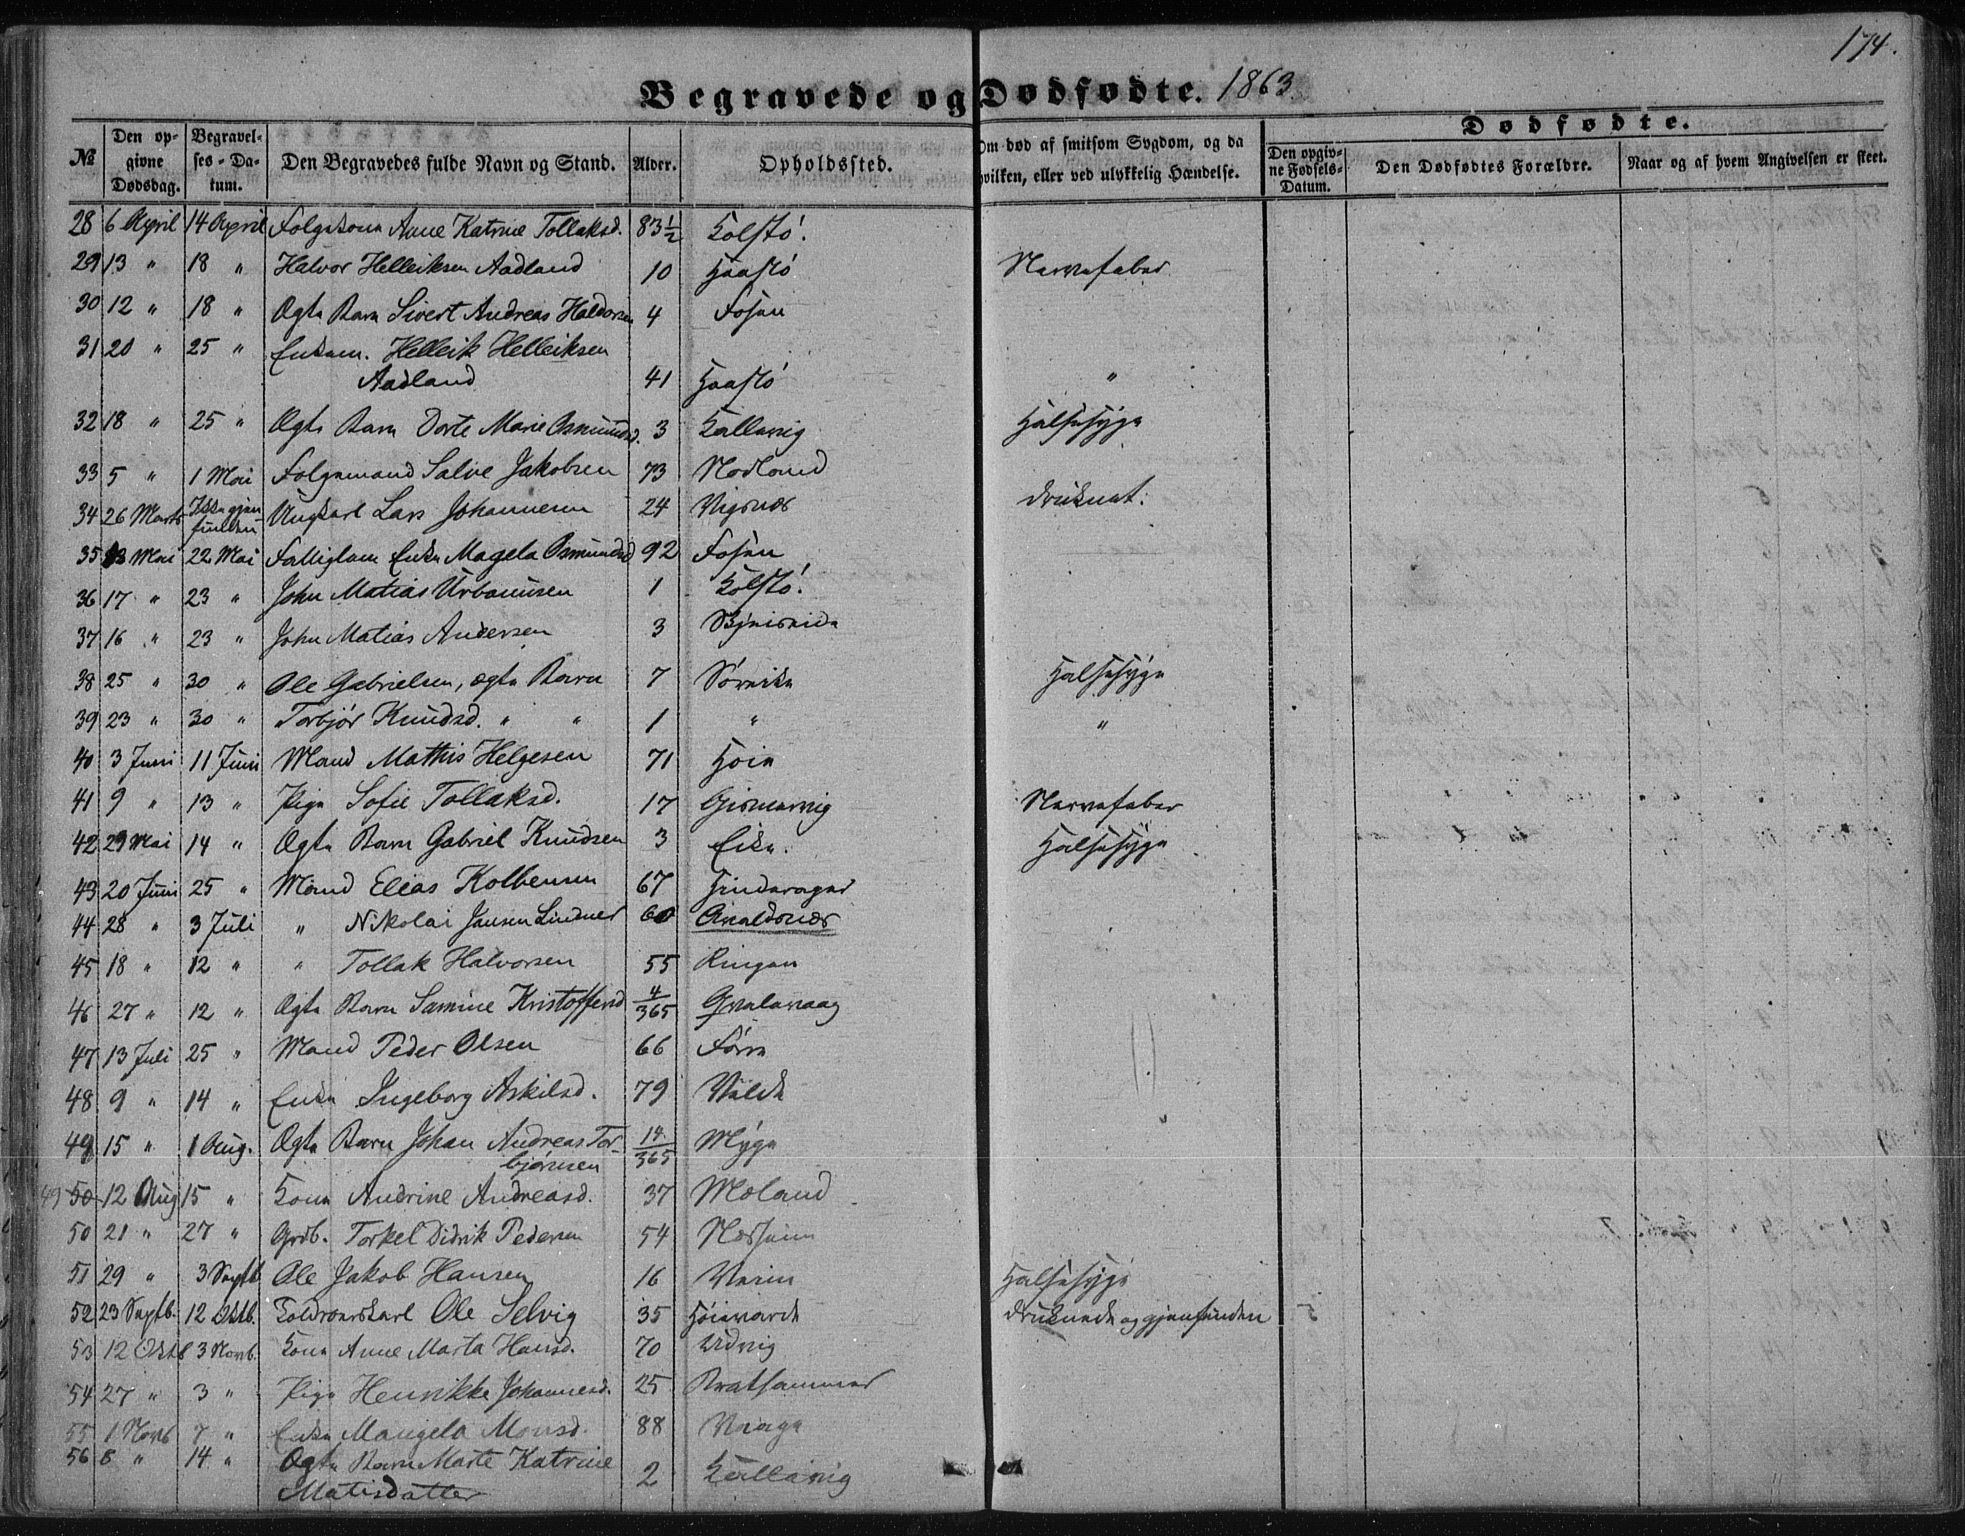 174.
Begravede og Dødfødte. 1863
№
Den opgivne Dødsdag.
Begravelses-Datum.
Den Begravedes fulde Navn og Stand.
Alder.
Opholdssted.
Om død af smitsom Sygdom, og da hvilken, eller ved ulykkelig Hændelse.
Dødfødte.
Den opgivne Fødsels-Datum.
Den Dødfødtes Forældre.
Naar og af hvem Angivelsen er skeet.
28 6 April 14 April Folgekone Anne Katrine Tollaksd. 83½ Kolstø.
29 13 " 18 " Halvor Helleiksen Aadland 10 Haastø Nervefeber
30 12 " 18 " Ægte Barn Sivert Andreas Haldorsen 4 Fosen
31 20 " 25 " Enkem. Helleik Helleiksen
Aadland 41 Haastø "
32 18 " 25 " Ægte Barn Dorte Marie Osmundsd. 3 Kallevig Halsesyge
33 5 " 1 Mai Folgemand Salve Jakobsen 73 Nodland
34 26 Marts Ikke gjenfunden Ungkarl Lars Johannesen 24 Vigsnæs druknet.
35 13 Mai 22 Mai Fattiglem Enke Magela Osmundsd 92 Fosen
36 17 " 23 " John Matias Urbanusen 1 Kolstø.
37 16 " 23 " John Matias Andersen 3
38 25 " 30 " Ole Gabrielsen, ægte Barn 7 Søreike Halsesyge
39 23 " 30 " Torbjør Knudsd. " " 1 " "
40 3 Juni 11 Juni Mand Mathis Helgesen 71 Høie
41 9 " 13 " Pige Sofie Tollaksd. 17 Gismervig Nervefeber
42 29 Mai 14 " Ægte Barn Gabriel Knudsen 3 Eike. Halsesyge
43 20 Juni 25 " Mand Elias Kolbensen 67 Hinderager
44 28 " 3 Juli " Nikolai Jansen Lindner 60 Avaldsnæs
45 18 " 12 " " Tollak Halvorsen 55 Ringen
46 27 " 12 " Ægte Barn Samine Kristoffersd 4/365 Gvalevaag
47 13 Juli 25 " Mand Peder Olsen 66 Førre
48 9 " 14 " Enke Ingeborg Askilsd. 79 Velde
49 15 " 1 Aug. Ægte Barn Johan Andreas Tor-
bjørnsen 14/365 Myge
49 50 12 Aug 15 " Kone Andrine Andreasd. 37 Moland
50 21 " 27 " Grdb. Torkel Didrik Pedersen 54 Nesheim
51 29 " 3 Septb Ole Jakob Hansen 16 Halsesyge
52 23 Septb. 12 Oktb. Toldroerskarl Ole Selvig 35 Høievarde druknede og gjenfunden
53 12 Oktb 3 Novb. Kone Anne Marta Hansd. 70 Udvig
54 27 " 3 " Pige Henrikke Johannesd. 25 Brathammer
55 1 Novb 7 " Enke Mangela Monsd. 88 Vaage
56 8 " 14 " Ægte Barn Marte Katrine
Matisdatter 2 Kallevig